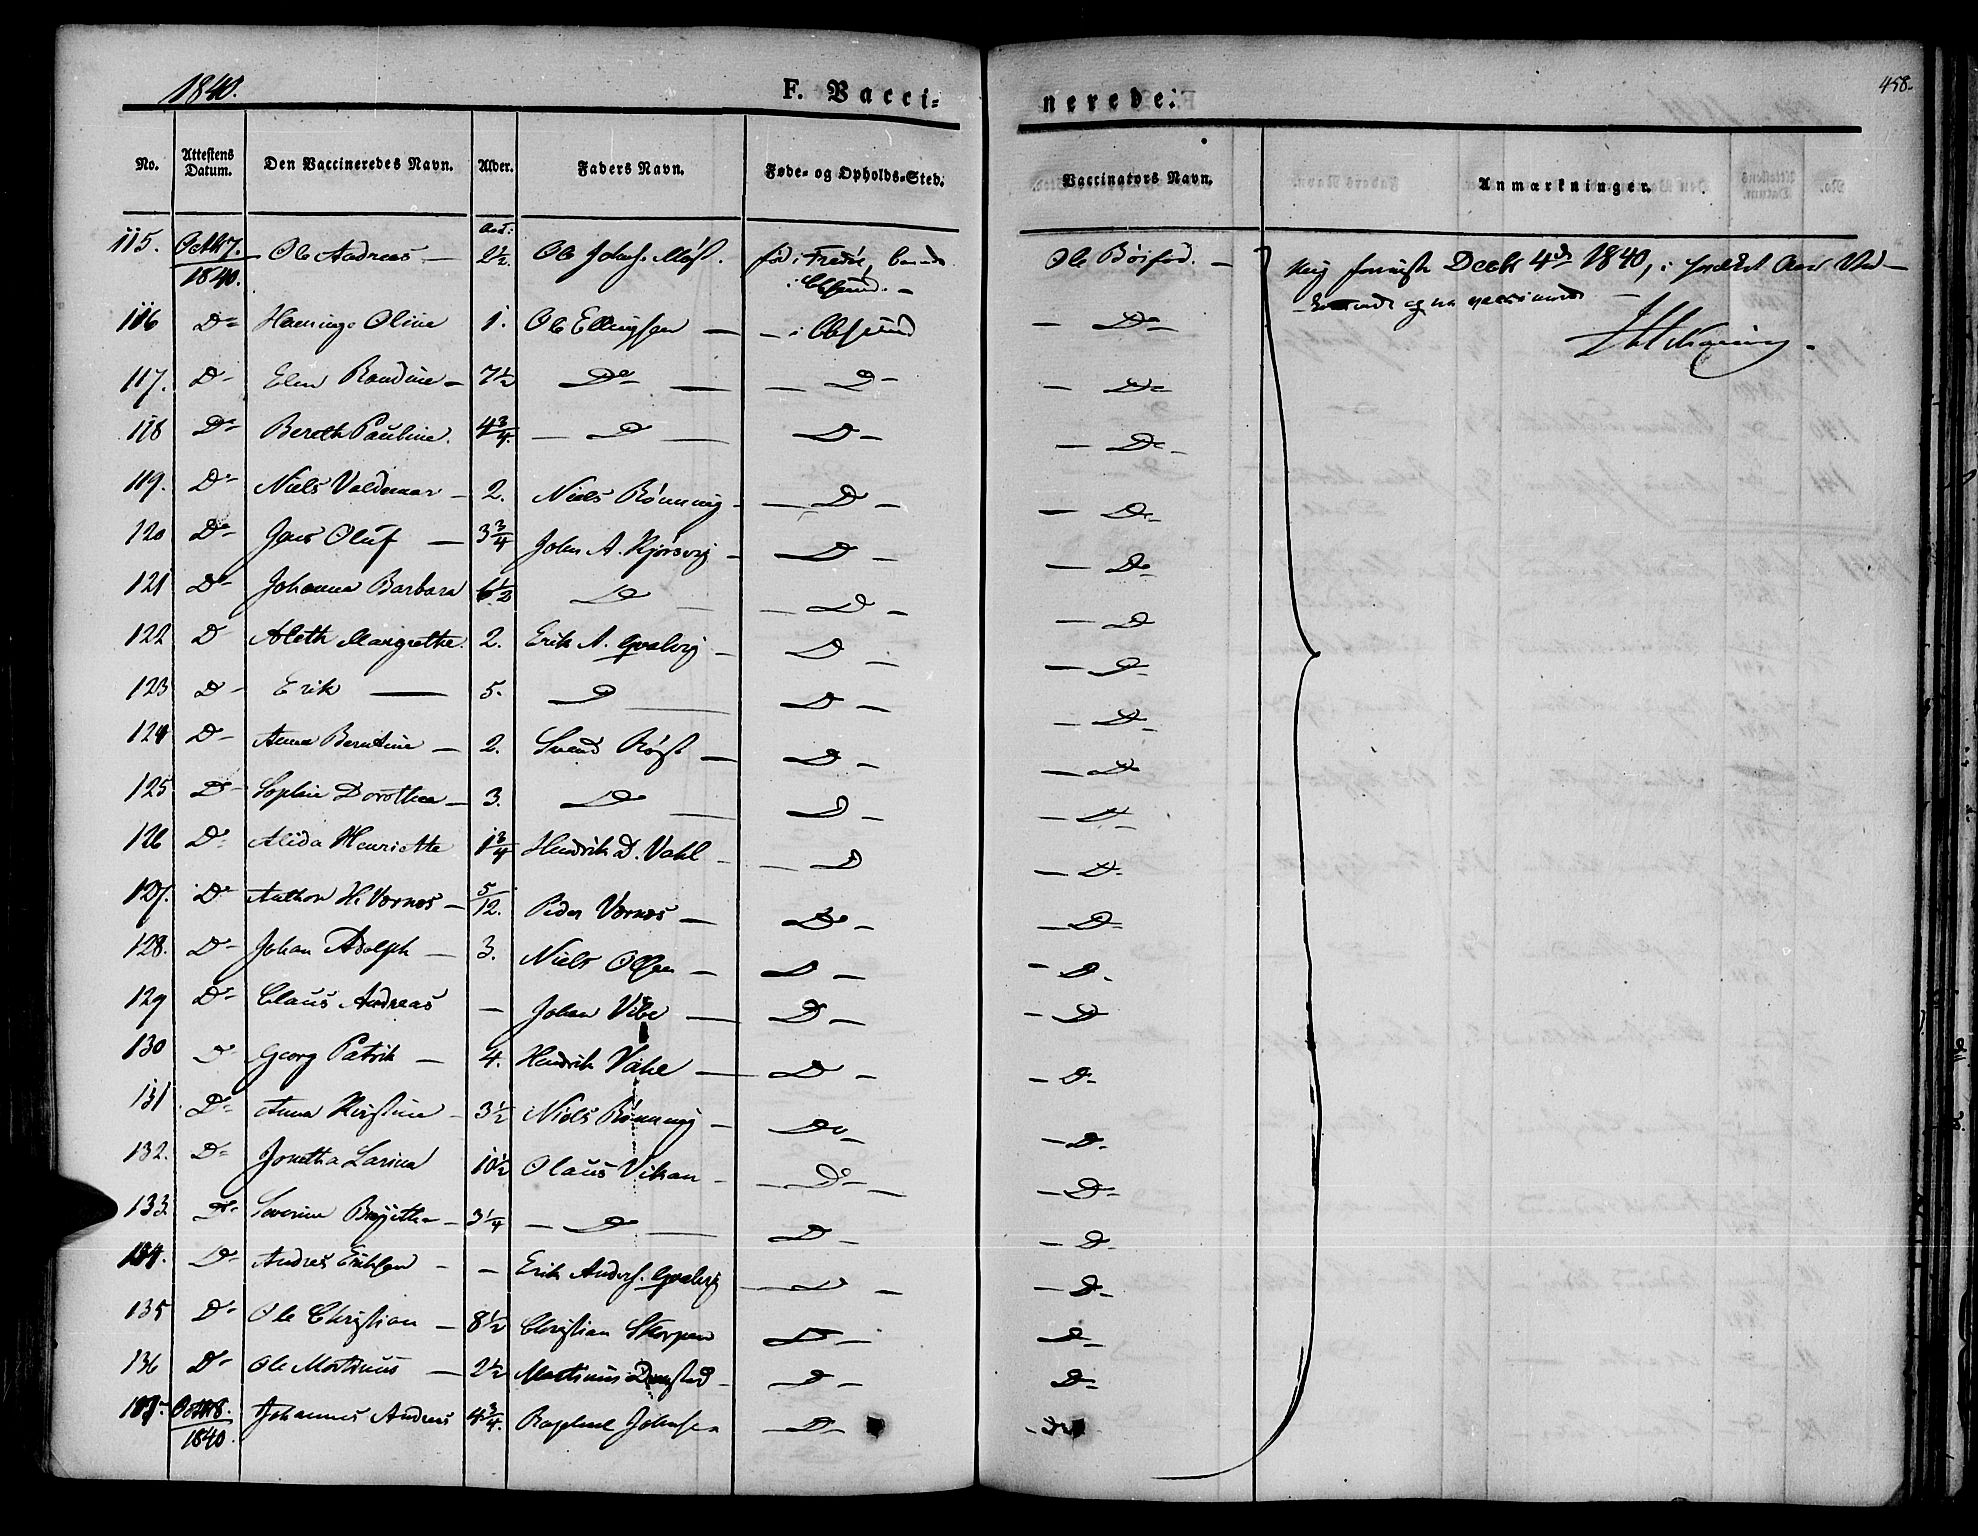 1840.
F. Vacci-
nerede.
458.
No. Attestens Datum. Den Vaccineredes Navn. Alder. Faders Navn. Føde- og Opholds-Sted. Vaccinators Navn. Anmærkninger.
115. Octbr 7. 1840. Ole Andreas — 2½. Ole Johns. fød i Fredø, boende i Chsund. — Ole —
Decbr 4de 1840, i
116 Do Oline 1. Ole Ellingsen — — i Chsund — Do —
117. D — Elen Randine — 7½ Do — — D — — Do —
118 Do Bereth Pauline. 4¾. — D — D — — Do —
119. Do Niels Valdemar — 2. Niels Rønning — — D — — Do —
120 Do Jens Oluf — 3¾ John A. Kjørsvig — D — — Do —
121 Do Johanna Barbara 6½ D — — D — — D
122 D Aleth Margrethe. 2. Erik A. Qvalvig — D — — D —
123 D — Erik — 5. D — D — — D —
124 D — Anna Berntine — 2. Svend Røgst — D — — D
125 Do Sophie Dorothea — 3. D — D — — D —
126 Do Alida Henriette 1¾ Hendrik D. Vahl — — D — D —
127. D Anthon H. Vornes — 5/12. Peder Vornes — Do — — D —
128. D — Johan Adolph — 3. Niels Olsen — D — — D —
129 Do Claus Andreas — Johan Vibe — D — — D
130 D Georg Patrik — 4. Hendrik Vahl — D — — D —
131 Do Anna Kirstine — 3½ Niels Rønning — Do — — D —
132. Do Jonetha Larina 10½ Olaus Vikan — — Do — — D —
133. Do Severine — 3¼ — D — D — — D —
134. Do Andres Eriksen — — Erik Anders. Qvalvig — D — — D —
135 Do Ole Christian — 8½ Christian Skorpen D — D —
136 Do Ole Martinus — 2½ Martinus — D — D —
137. Octbr 8. 1840. Johannes Andreas 4¾. Raphael Johnsen — D —